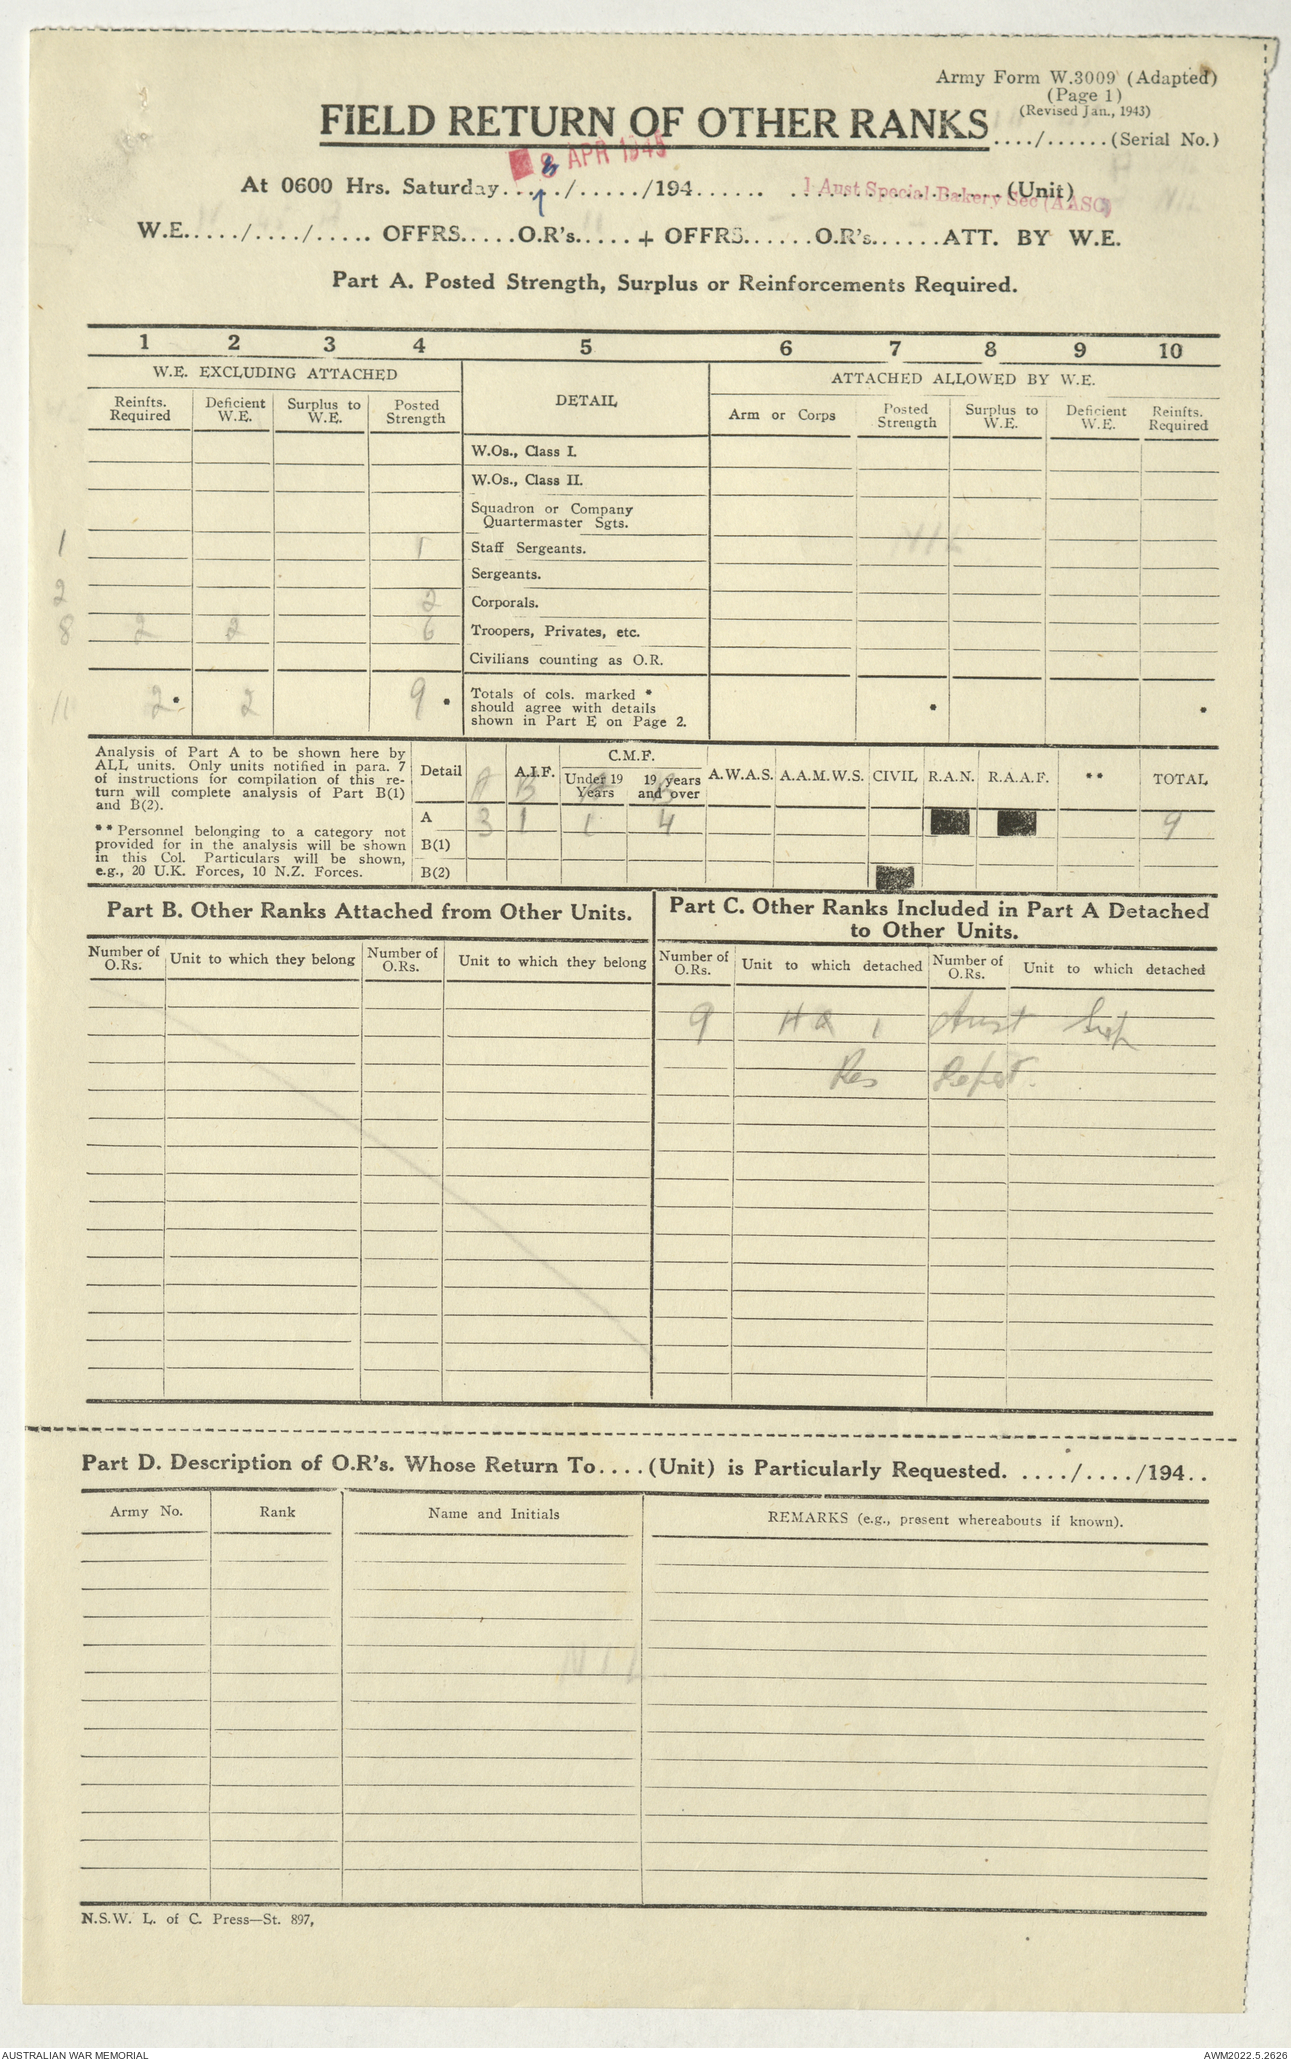 Army Form W.3009 (Adapted)
(Page 1)
(Revised Jan., 1943)
FIELD RETURN OF OTHER RANKS
..../......(Serial No.)
8 APR 1945
At 0600 Hrs. Saturday....../....../194...... ....................(Unit)
1 Aust Special Bakery Sec (AASC)
W.E...../..../..... OFFRS.....O.R's..... + OFFRS......O.R's......ATT. BY W.E.
Part A. Posted Strength, Surplus or Reinforcements Required.
1 2 3 4 5 6 7 8 9 10
W.E. EXCLUDING ATTACHED DETAIL ATTACHED ALLOWED BY W.E.
Reinfts. Required Deficient W.E. Surplus to W.E. Posted Strength Arm or Corps Posted Strength Surplus to W.E. Deficient W.E. Reinfts. Required
W.Os., Class I.
W.Os., Class II.
Squadron or Company
Quartermaster Sgts.
1 1 Staff Sergeants. NIL
Sergeants.
2 2 Corporals.
8 2 2 6 Troopers, Privates, etc.
Civilians counting as O.R.
11 2 * 2 9 * Totals of cols. marked * * *
should agree with details
shown in Part E on Page 2.
Analysis of Part A to be shown here by
ALL units. Only units notified in para. 7
of instructions for compilation of this re-
turn will complete analysis of Part B(1)
and B(2).
** Personnel belonging to a category not
provided for in the analysis will be shown
in this Col. Particulars will be shown,
e.g., 20 U.K. Forces, 10 N.Z. Forces.
Detail A.I.F. C.M.F. A.W.A.S. A.A.M.W.S. CIVIL R.A.N. R.A.A.F. ** TOTAL
Under 19 Years 19 years and over
A B A B
A 3 1 1 4 9
B(1)
B(2)
Part B. Other Ranks Attached from Other Units.
Number of O.Rs. Unit to which they belong Number of O.Rs. Unit to which they belong
Part C. Other Ranks Included in Part A Detached
to Other Units.
Number of O.Rs. Unit to which detached Number of O.Rs. Unit to which detached
9 HQ 1 Aust Sup
Res Depot.
Part D. Description of O.R's. Whose Return To....(Unit) is Particularly Requested. ..../..../194..
Army No. Rank Name and Initials REMARKS (e.g., present whereabouts if known).
NIL
N.S.W. L. of C. Press—St. 897,
AUSTRALIAN WAR MEMORIAL
AWM2022.5.2626